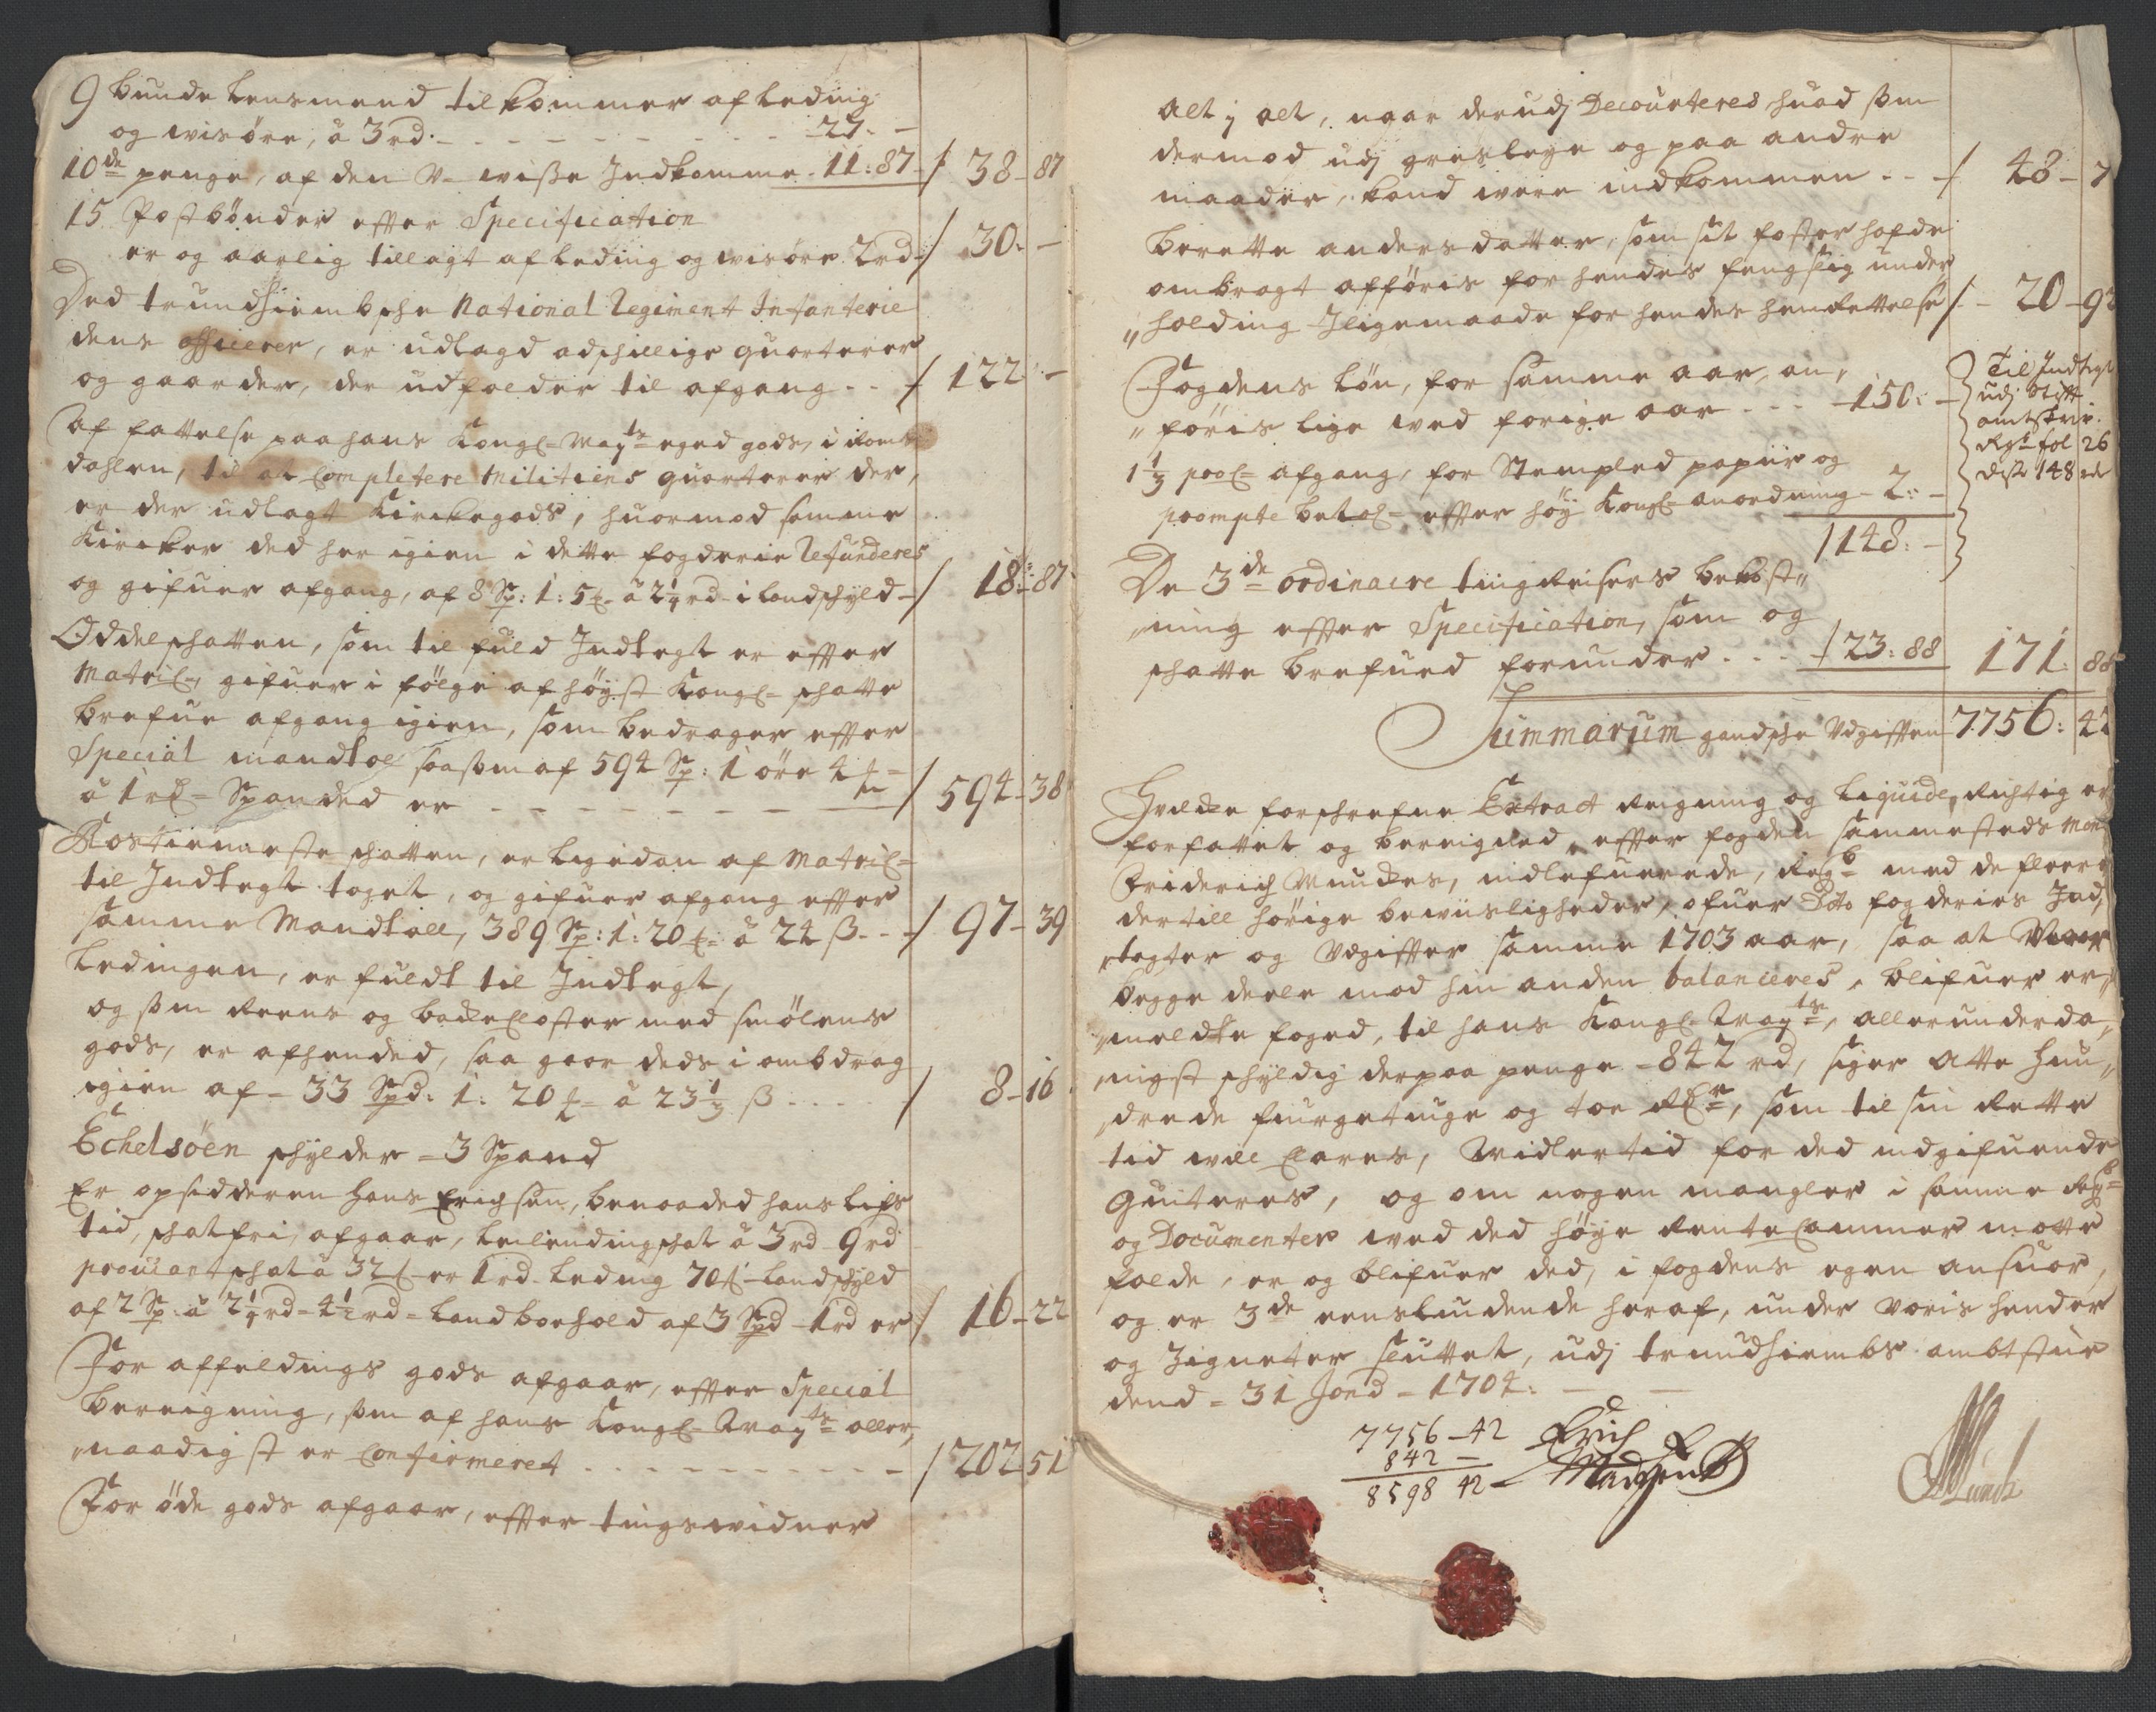 9 bunde Lensmend tilkommer af leding
og wisøre, â 3 rd. - - - - - - - 27. -
10de penge, af den U-wiße Indkomme - 11: 87 - / 38 - 87
15 Postbønder efter Specification
er og aarlig tillagt af leding og wisøre 2rd / 30. -
Ded trundhiembsche National Regiment Infanterie
dens officerer, er udlagd adschillige quarterer
og gaarder, der udfolder til afgang - - / 122 -
Af fattelse paa hans Kongl- Mayts eged gods, i Roms-
dahlen, til at Completere Militiens quarterer der,
er der udlagt Kirckegods, huormod samme
Kircker ded her igien i dette fogderie Refunderes
og gifuer afgang, af 8 Sp: 1: 5 â 2¼ rd i landschyld - / 18: 87
Oddelschatten, som til fuld Indtegt er efter
Matricl, gifuer i følge af høyst Kongl- schatte
brefue afgang igien, som bedrager efter
Special mandtal saasom af 594 Sp: 1 øre 4
â 1 rd- Spanded er - - - - - - - / 594 - 38
Kostieneste schatten, er ligedan af Matricl-
til Indtegt taget, og gifuer afgang efter
samme Mandtall, 389 Sp: 1: 20 â 24 ß - - / 97 - 39
Ledingen, er fuldt til Indtegt,
og som Reens og backe Closter med smølens
gods, er afhended, saa gaar deds i ombdrag
igien af - 33 Spd: 1: 20 â 23⅓ ß - - - - / 8 - 16
Echelsöen schylder = 3 Spand
Er opsidderen Hans Erichsen, benaaded hans lifs
tid, schatfri, afgaar, leilendingschat â 3 rd 9 rd
prouiantschat â 32 ß er 1 rd leding 70 ß Landschyld
af 2 Sp: â 2¼ rd - 4½ rd - Landboehold af 3 Spd 1 rd er / 16 - 22
For affeldings gods afgaar, efter Special
beregning, som af hans Kongl- Mayts aller
naadigst er Confirmeret - - - - - - - / 202 51
For øde gods afgaar, efter tingswidner
Alt j alt, naar derudj Decourteres huad som
dermod udj gresleye og paa andre
maader, kand were indkommen - - / 48 - 7
Berette andersdatter, som sit foster hafde
ombragt afføris for hendes fengslig under
"holding Iligemaade for hendes henrettelse / - 20 - 92
Fogdens Løn, for samme aar, an,
"føris lige wed forige aar - - - 150: -
Til Indtegt
udj Stift
amtskrifr.
Rgs fol 26
dis 148 rd
1⅓ proc- afgang, for Stempled papiir og
prompte betal- efter høy Kongl- anordning - 2: -
/ 148: -
De 3de ordinaire tingreisers bekost"
"ning efter Specification, som og
schatte brefued formelder - - - / 23: 88 171: 88
Summarum gandsche Udgifften 7756: 42
Huilcke forschrefne Extract Reigning og Liquide, Rigtig er
forfattet og bereigned, efter fogden sammesteds Mons.
Friderich Muncks, indlefuerede, Regb med de fleere
dertill hørige bewiisligheder, ofuer Dito fogderies Ind,
"tegter og Udgiffter samme 1703 aar, saa at
begge deele mod hin anden balanceres, blifuer er"
"meldte foged, til hans Kongl Mayts, allerunderda,
"nigst schyldig derpaa penge - 842 rd, siger Atte hun"
"drede fiurgetiuge og toe Rdr, som til sin Rette
tid will Clares, Midlertid for ded indgifuende
Quiteres, og om nogen mangler i samme Regb-
og Documenter wed ded høye Rente Cammer motte
falde, er og blifuer ded, i fogdens egen ansuor,
og er 3de eensludende heraf, under voris hender
og Zigneter sluttet, udj trundhiembs ambtstue
dend = 31 Jan: - 1704: -
7756 - 42
842 -
8598 42 -
Erich
Madssen
FMunch